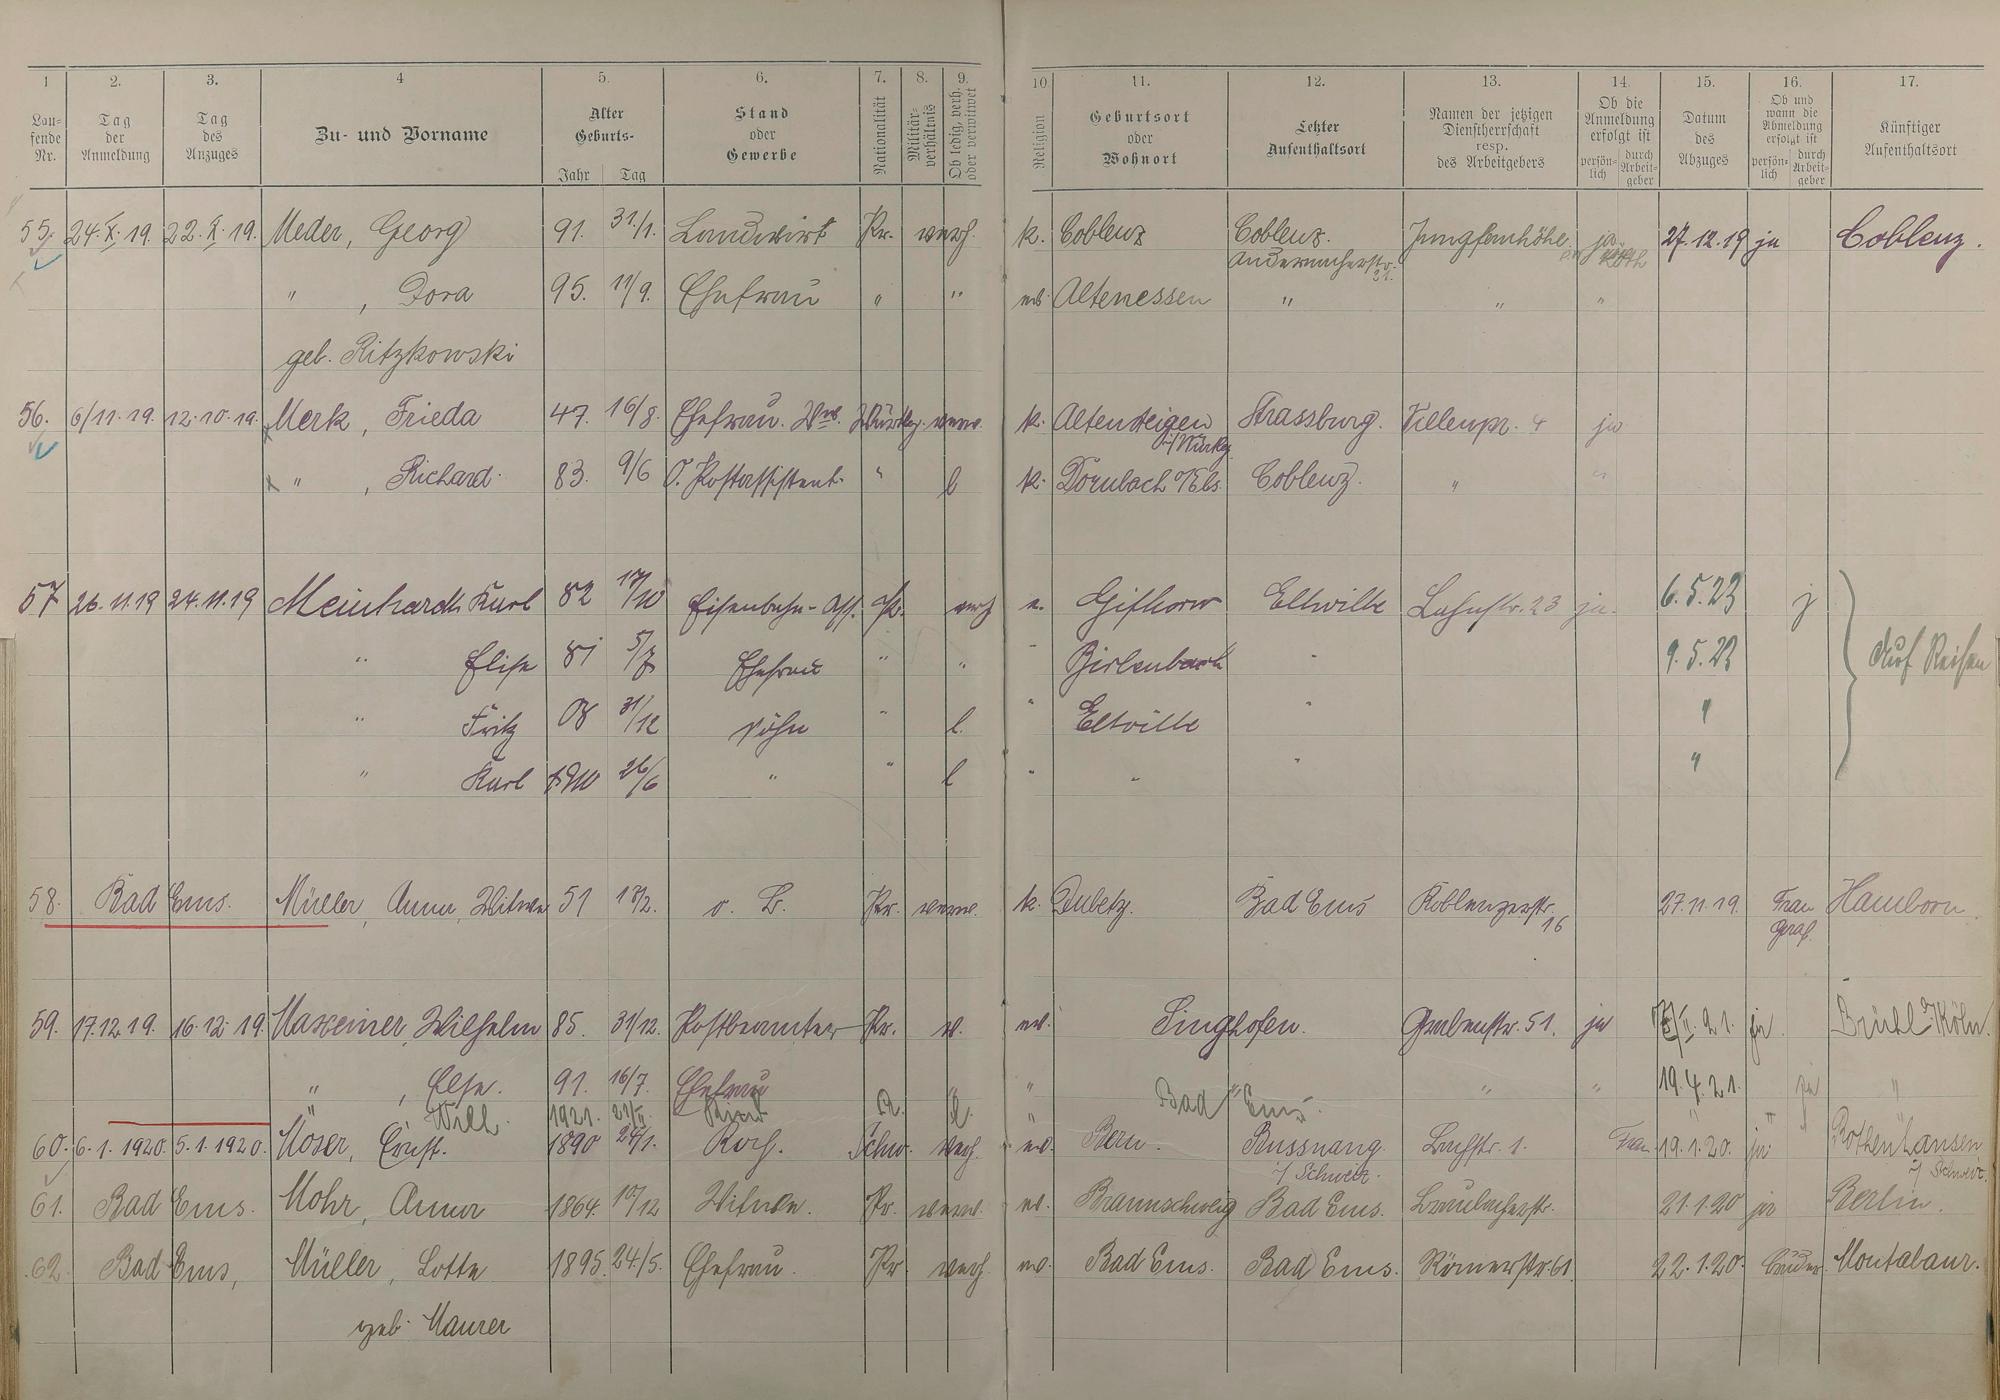 1 2. 3. 4 5. 6. 7. 8. 9. 10 11. 12. 13. 14. 15. 16. 17.
Laufende Nr. Tag der Anmeldung Tag des Anzuges Zu- und Vorname Alter Geburts- Jahr Tag Stand oder Gewerbe Nationalität Militärverhältnis Ob ledig, verh. oder verwitwet Religion Geburtsort oder Wohnort Letzter Aufenthaltsort Namen der jetzigen Dienstherrschaft resp. des Arbeitgebers Ob die Anmeldung erfolgt ist persönlich durch Arbeitgeber Datum des Abzuges Ob und wann die Abmeldung erfolgt ist persönlich durch Arbeitgeber Künftiger Aufenthaltsort
55. 24.X.19. 22.X.19. Meder, Georg 91. 31/1. Landwirt Pr. verh. k. Coblenz Coblenz. Jungfernhöhe ja 27.12.19 ja Coblenz.
Andernacherstr. 21.
" , Dora 95. 11/9. Ehefrau " " ev. Altenessen " " "
geb. Ritzkowski
56. 6/11.19. 12.10.19. Merk, Frieda 47. 16/8. Ehefrau. Ww. Württbg. verw. k. Altensteigen Strassburg. Villenpr. 4 ja
" , Richard. 83. 9/6 O. Postassistent. " l k. Dornbach Coblenz. " "
57 26.11.19 24.11.19 Meinhardt Karl 82 17/10 Eisenbahn-Ass. Pr. verh e. Gifhorn Eltville Lahnstr. 23 ja. 6.5.23 j
" Elise 81 5/7 Ehefrau " " " Birlenbach " 9.5.23 Auf Reisen
" Fritz 08 31/12 Sohn " l. " Eltville " "
" Karl 1910 26/6 " " l " " " "
58. Bad Ems. Müller, Anna, Witwe 51 o. B. Pr. verw. k. Dubetz. Bad Ems Koblenzerstr. 27.11.19. Frau Hamborn.
16 Graf.
59. 17.12.19. 16.12.19. Maxeiner, Wilhelm 85. 31/12. Postbeamter Pr. v. ev. Singhofen. Grabenstr. 51. ja II.21. ja Brühl Köln.
" , Else. 91. 16/7. Ehefrau " " " " 19.4.21. ja "
" Will. 1921. Kind " Bad Ems.
60. 6.1.1920. 5.1.1920. Moser, Ernst. 1890 24/1. Koch. Schw. verh. ev. Bern. Bussnang 19.1.20. ja Rothenhausen
i/ Schweiz. i/ Schweiz.
61. Bad Ems. Mohr, Anna 1864. 10/12 Witwe. Pr. verw. ev. Braunschweig Bad Ems. Braubacherstr. 21.1.20 ja Berlin.
62. Bad Ems, Müller, Lotte 1895. 24/5. Ehefrau. Pr verh. ev. Bad Ems. Bad Ems. Römerstr. 61. 22.1.20. Bruder Montabaur.
geb. Maurer